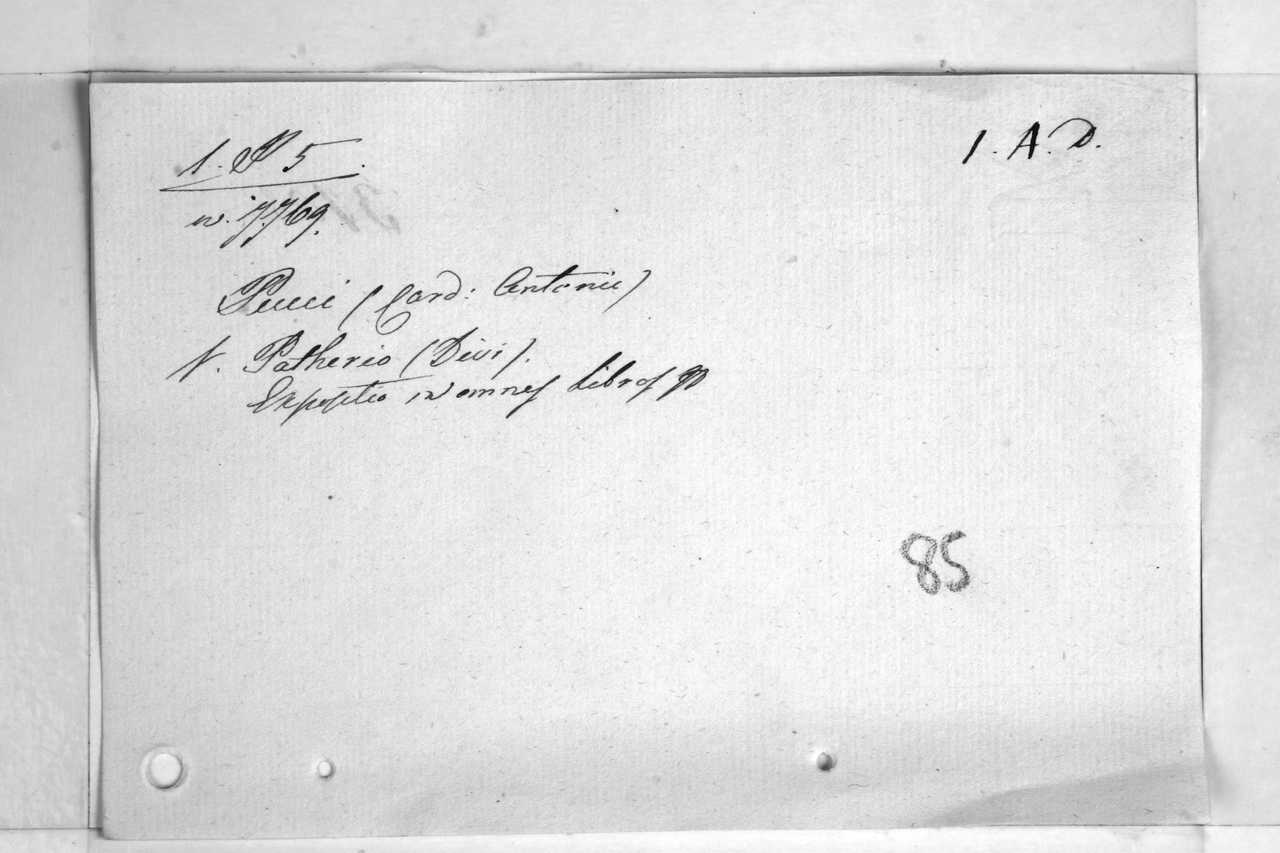 1. P 5.
1. A. D.
n. 17.769.
Pucci (Card: Antonii)
V. Patherio (Divi).
Expositio in omnes Libros
85